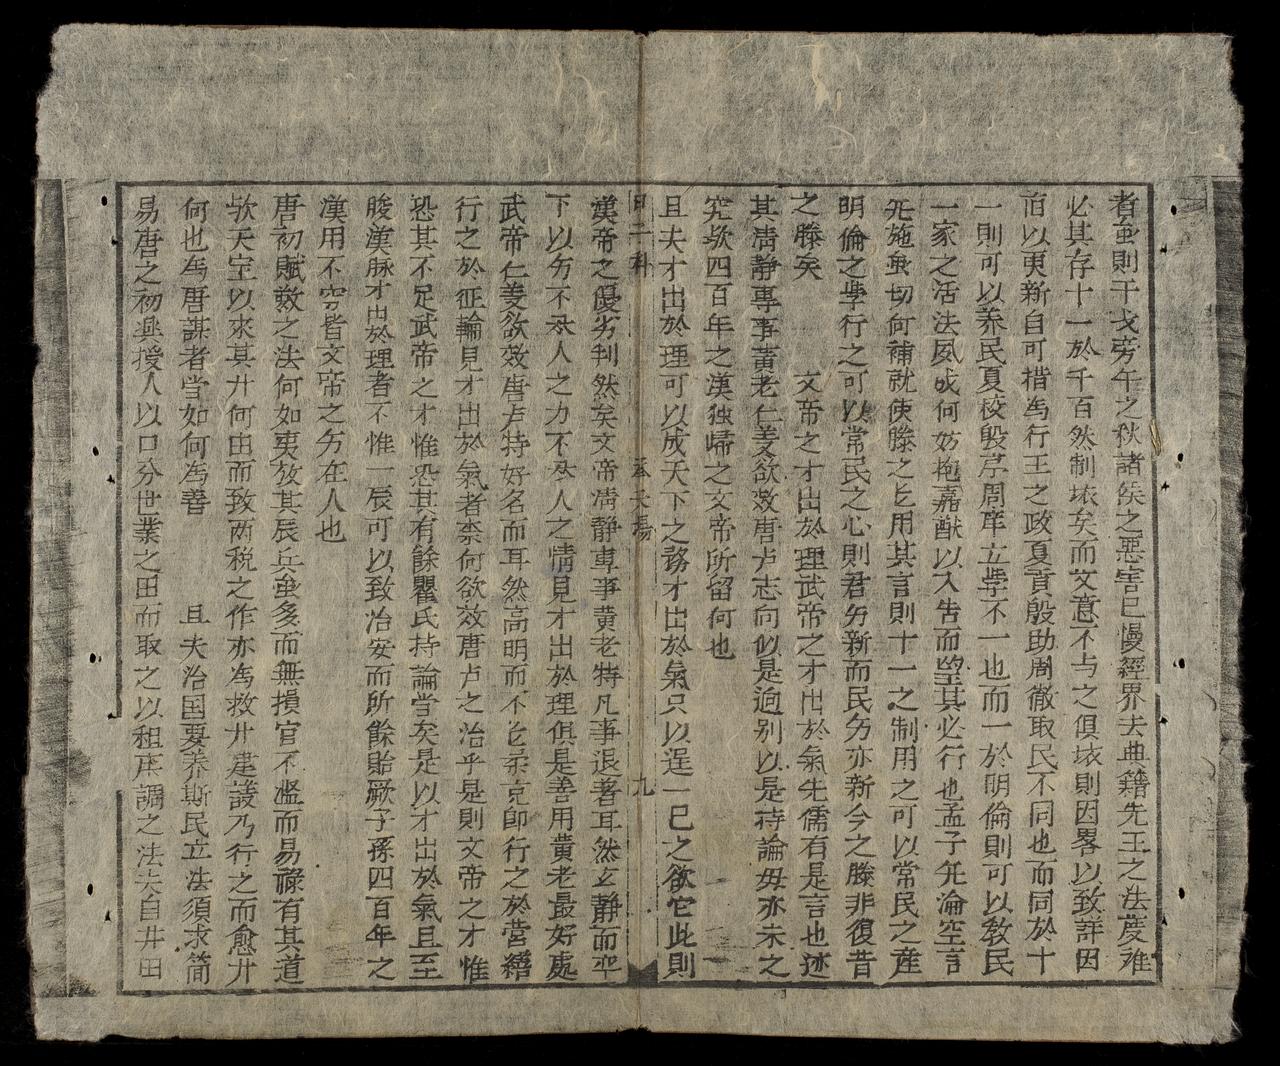 者虽則干戈旁午之秋諸侯之惡害已慢經界去典籍先王之法度难
必其存十一於千百然制坏矣而文意不与之俱坏則因畧以致詳因
旧以更新自可措為行王之政夏貢殷助周徹取民不同也而同於十
一則可以养民夏校殷序周庠立斈不一也而一於明倫則可以教民
一家之活法夙成何妨抱嘉猷以入告而望其必行也孟子 淪空言
 施虽切何補就使滕之 用其言則十一之制用之可以常民之產
明倫之斈行之可以常民之心則君 新而民 亦新今之滕非復昔
之滕矣　文帝之才出於理武帝之才出於氣先儒有是言也迹
其清静專事黄老仁義欲效唐卢志向似是迥别以是持論毋亦未之
究欤四百年之漢独帰之文帝所留何也
且夫才出於理可以成天下之務才出於氣只以逞一己之欲它此則
甲二科　丞天場　九
漢帝之優劣判然矣文帝清静専事黄老特凡事退著耳然玄静而平
下以 不 人之力不 人之情見才出於理俱是善用黄老最好處
武帝仁義欲效唐卢特好名而耳然高明而不 柔克即行之於营繕
行之於征輪見才出於氣者柰何欲效唐卢之治乎是則文帝之才惟
恐其不足武帝之才惟恐其有餘瞿氏持論當矣是以才出於氣且至
朘漢脉才出於理者不惟一辰可以致治安而所餘貽厥子孫四百年之
漢用不穷皆文帝之 在人也
唐初賦斂之法何如夷攷其辰兵虽多而無損官不濫而易祿有其道
欤天宝以来其廾何由而致两税之作亦為救廾建議乃行之而愈廾
何也為唐謀者當如何為善　且夫治国要养斯民立法須求简
易唐之初興授人以口分世業之田而取之以租庸調之法夫自井田